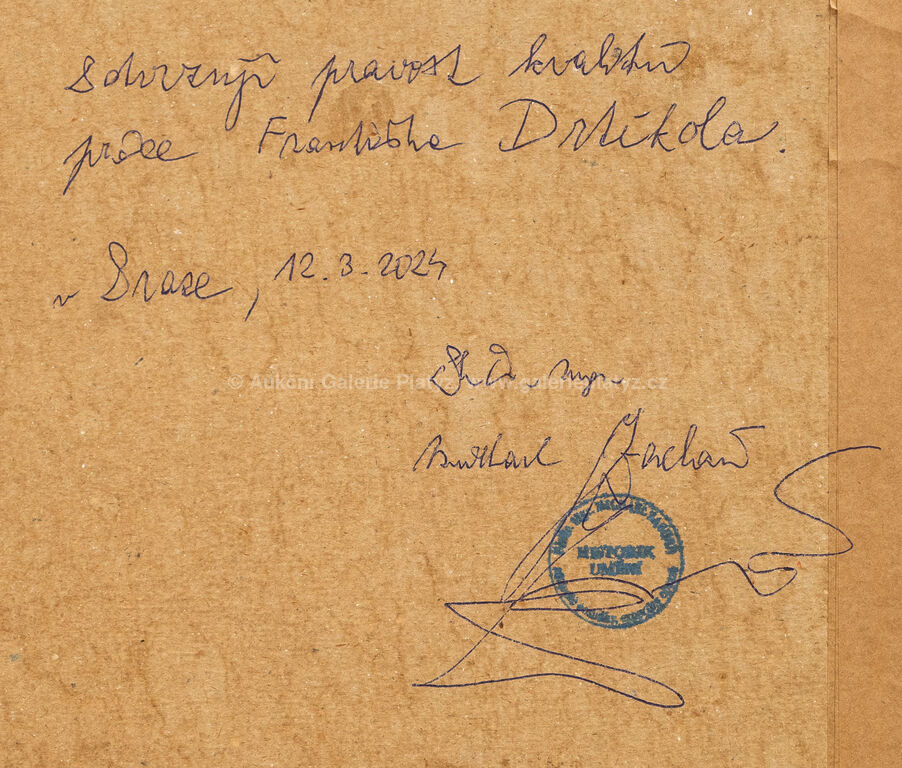 Stvrzuji pravost kvalitní
práce Františka Drtikola.
v Praze, 12.3.2024
© Aukční Galerie Platýz, www.galerieplatyz.cz
PhDr. mgr.
Michael Zachař
HISTORIK
UMĚNÍ